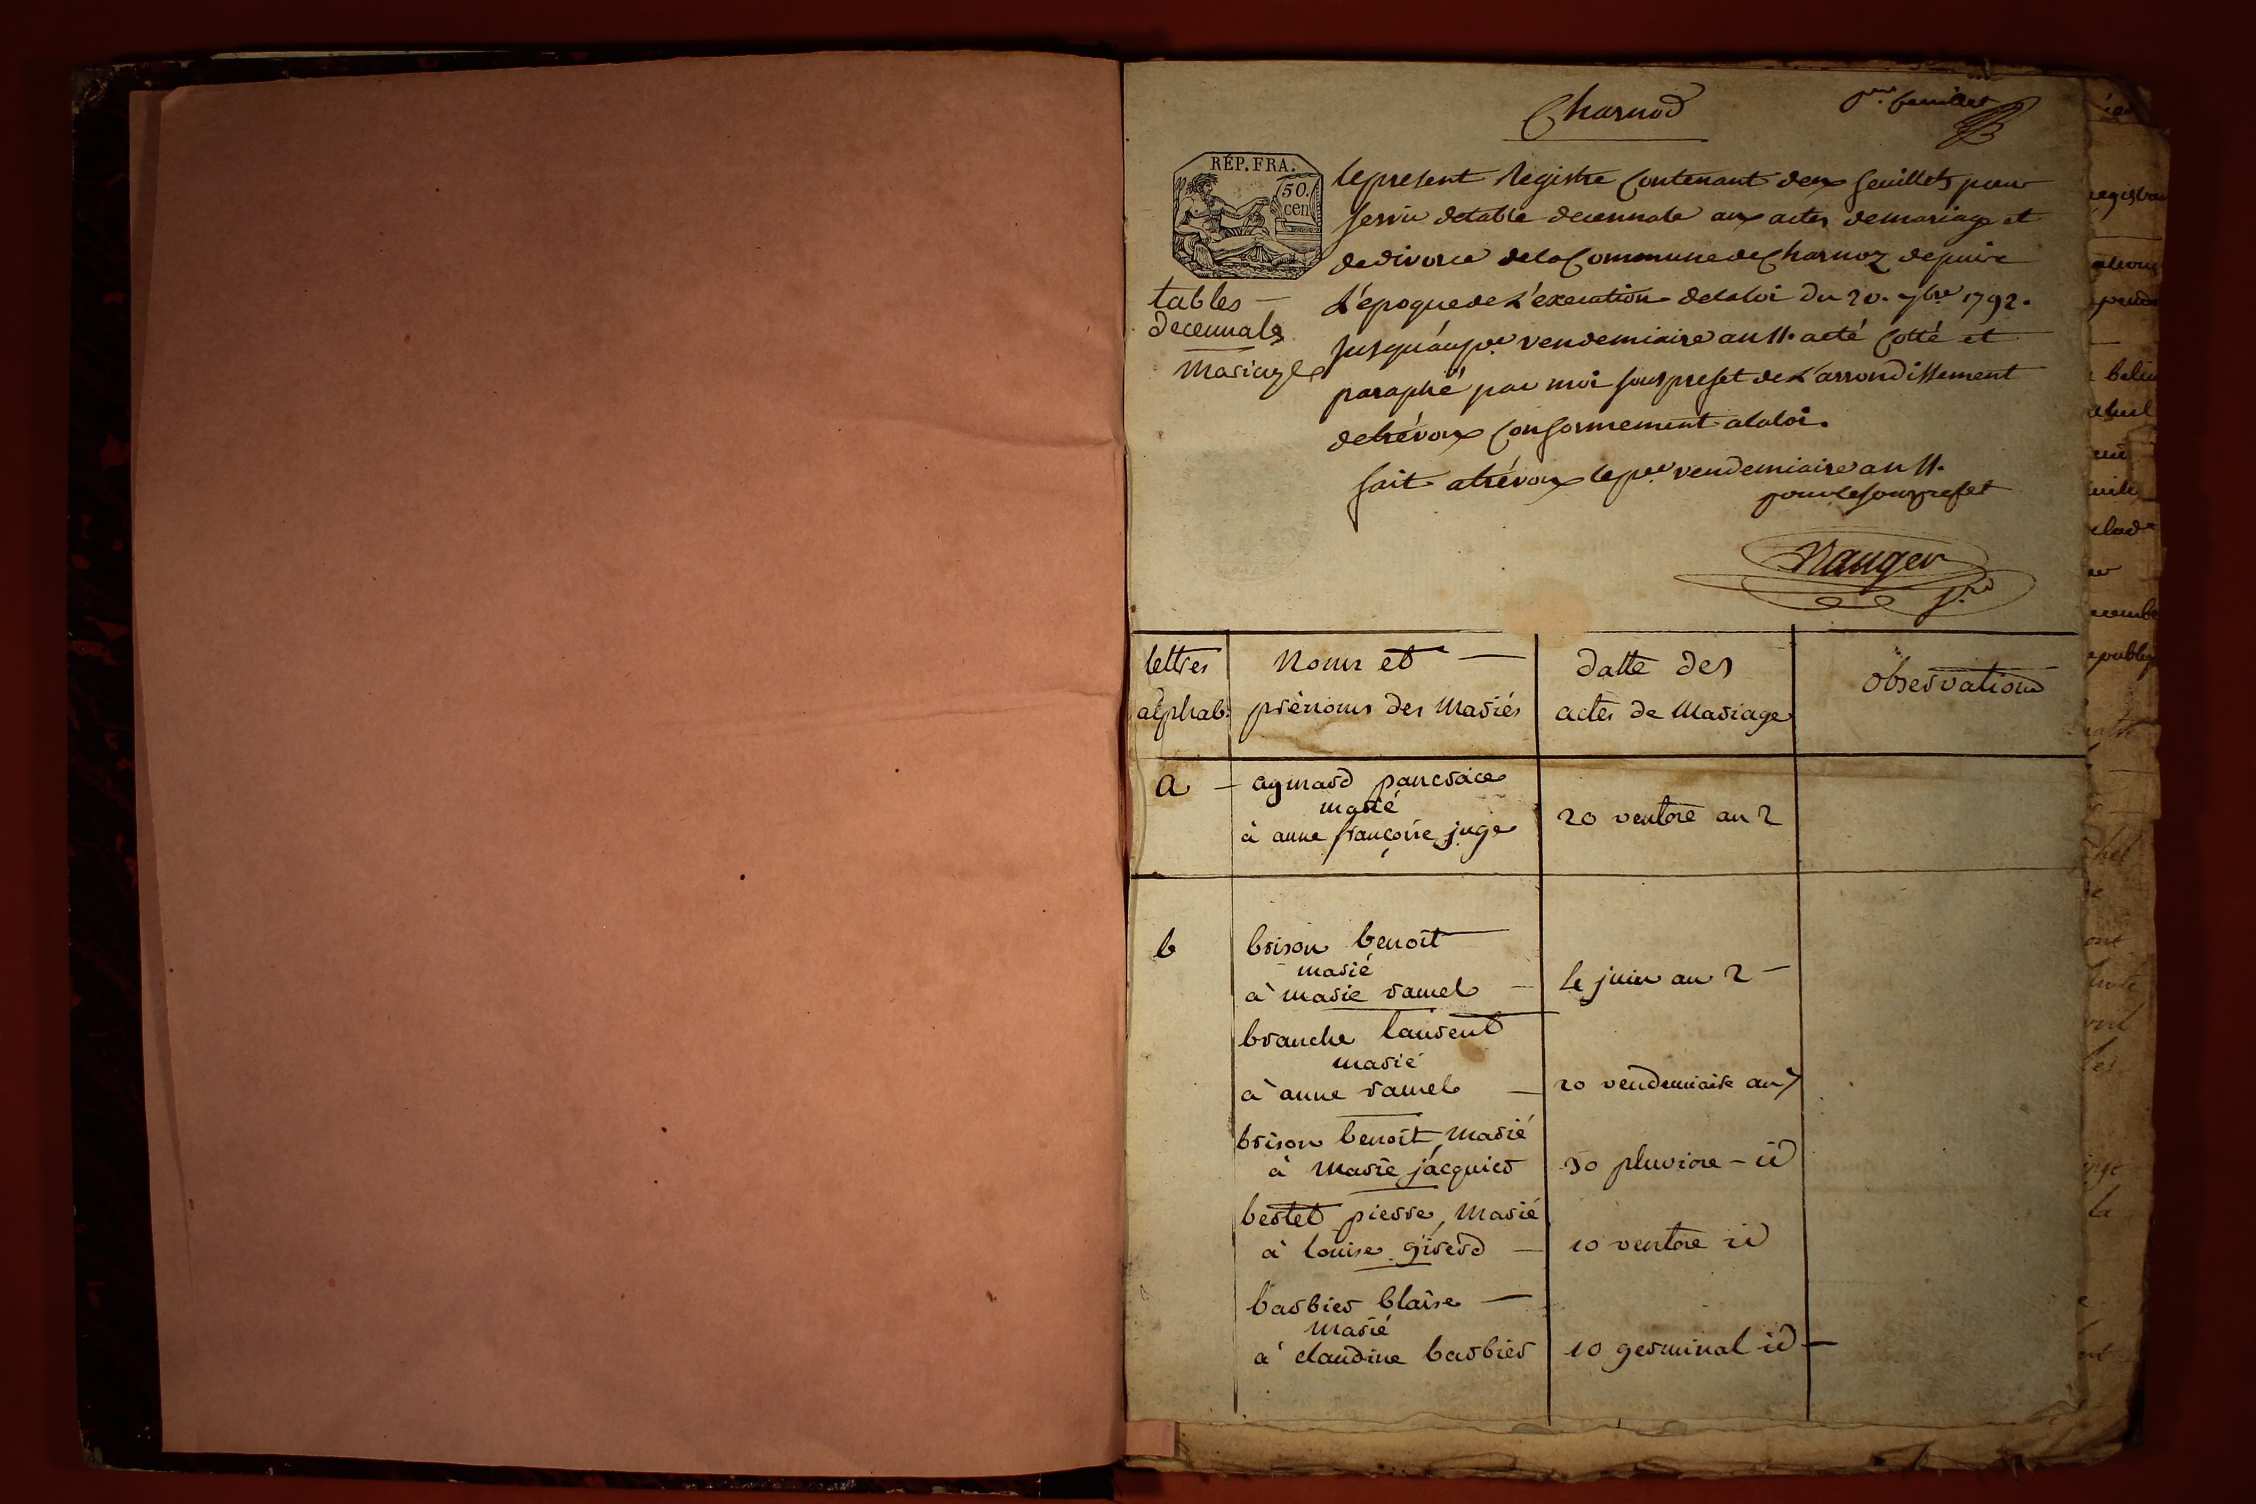 Charnod
p.er feuillet
RÉP. FRA.
50.
cen
le present Registre Contenant deux feuillets pour
servir de table decennale aux actes de mariage et
de divorce de la Commune de Charnoz depuis
L'epoque de L'execution de la loi du 20. 7bre 1792.
jusqu'au p.er vendemiaire an 11. a eté Cotté et
paraphé par moi souspréfet de L'arrondissement
de trévoux Conformement a la loi.
fait a trévoux le p.er vendemiaire an 11.
pour le souspréfet
tables
decennales
Mariages
lettres
alphab.
Noms et
prénoms des Mariés
datte des
actes de Mariage
observations
a
aymard pancrace
marié
à anne françoise juge
20 ventose an 2
b
brison benoit
marié
à marie ramel
4 juin an 2
branche laurent
marié
à anne ramel
20 vendemiaire an 7
brison benoit marié
à marie jacquier
30 pluviose - id
bertet pierre, marié
à louise girerd
10 ventose id
barbier blaise
marié
à claudine barbier
10 germinal id